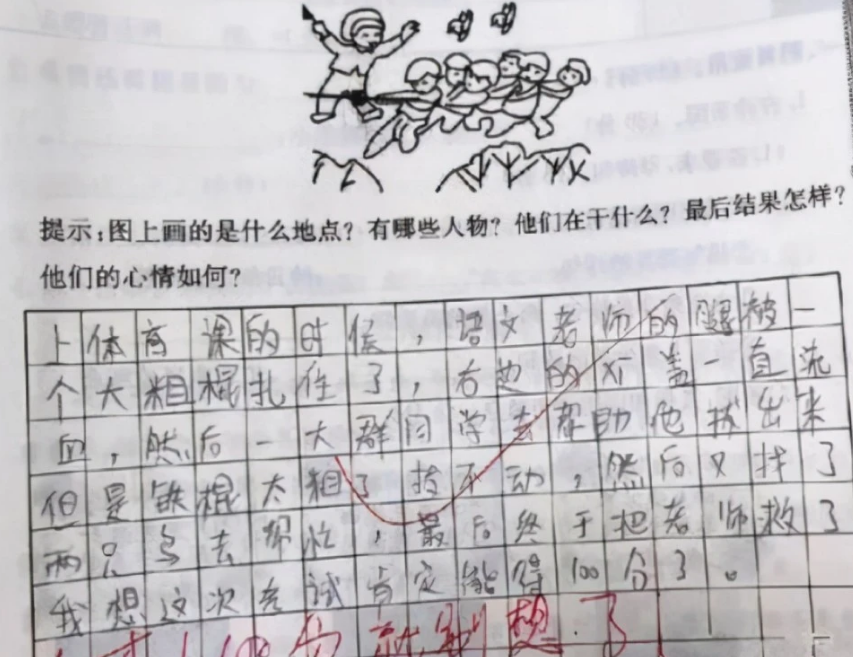 提示:图上画的是什么地点？有哪些人物？他们在干什么？最后结果怎样？
他们的心情如何？
上体育课的时候，语文老师的腿被一
个大粗棍扎住了，右边的膝盖一直流
血，然后一大群同学去帮助他拔出来
但是铁棍太粗了拔不动，然后又找了
两只鸟去帮忙，最后终于把老师救了
我想这次考试肯定能得100分了。
就别想了